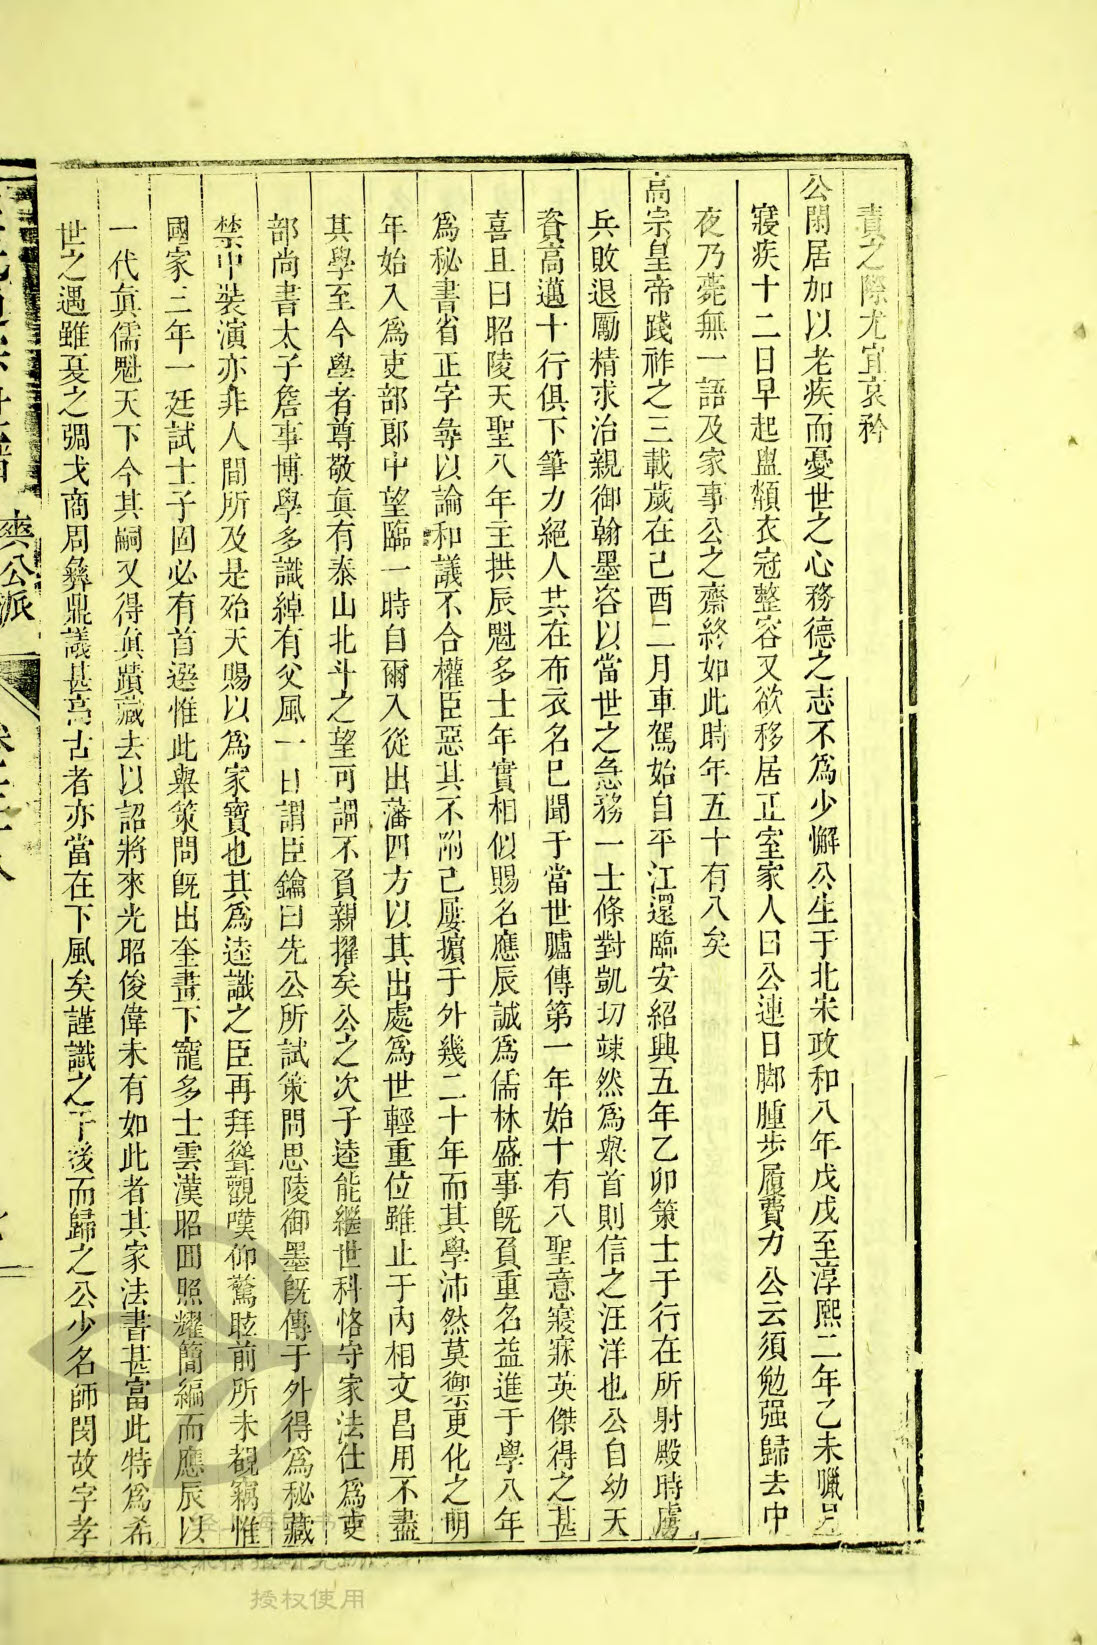 責之際尤宜哀矜
公閑居加以老疾而憂世之心務德之志不爲少懈公生于北宋政和八年戊戌至淳熙二年乙未臘呂
寢疾十二日早起盥颒衣冠整容又欲移居正室家人曰公連日脚腫步履費力公云須勉强歸去中
夜乃薨無一語及家事公之齋終如此時年五十有八矣
高宗皇帝踐祚之三載歲在己酉二月車駕始自平江還臨安紹興五年乙卯策士于行在所射殿時虜
兵敗退勵精求治親御翰墨咨以當世之急務一士條對凱切竦然爲舉首則信之汪洋也公自幼天
資高邁十行俱下筆力絕人其在布衣名已聞于當世臚傳第一年始十有八聖意寢寐英傑得之甚
喜且曰昭陵天聖八年主拱辰魁多士年實相似賜名應辰誠爲儒林盛事旣負重名益進于學八年
爲秘書省正字尋以論和議不合權臣惡其不附己屢擯于外幾二十年而其學沛然莫禦更化之明
年始入爲吏部郎中望臨一時自爾入從出藩四方以其出處爲世輕重位雖止于內相文昌用不盡
其學至今學者尊敬眞有泰山北斗之望可謂不負親擢矣公之次子逵能繼世科恪守家法仕爲吏
部尚書太子詹事博學多識綽有父風一日謂臣鑰曰先公所試策問思陵御墨旣傳于外得爲秘藏
禁中裝演亦非人間所及是殆天賜以爲家寶也其爲逵識之臣再拜聳觀嘆仰驚眩前所未覩竊惟
國家三年一廷試士子固必有首選惟此舉策問旣出奎畫下寵多士雲漢昭回照耀簡編而應辰以
一代眞儒魁天下今其嗣又得眞蹟藏去以詔將來光昭俊偉未有如此者其家法書甚富此特爲希
世之遇雖夏之琱戈商周彝鼎議甚高古者亦當在下風矣謹識之于後而歸之公少名師閔故字孝
爽公派
授权使用